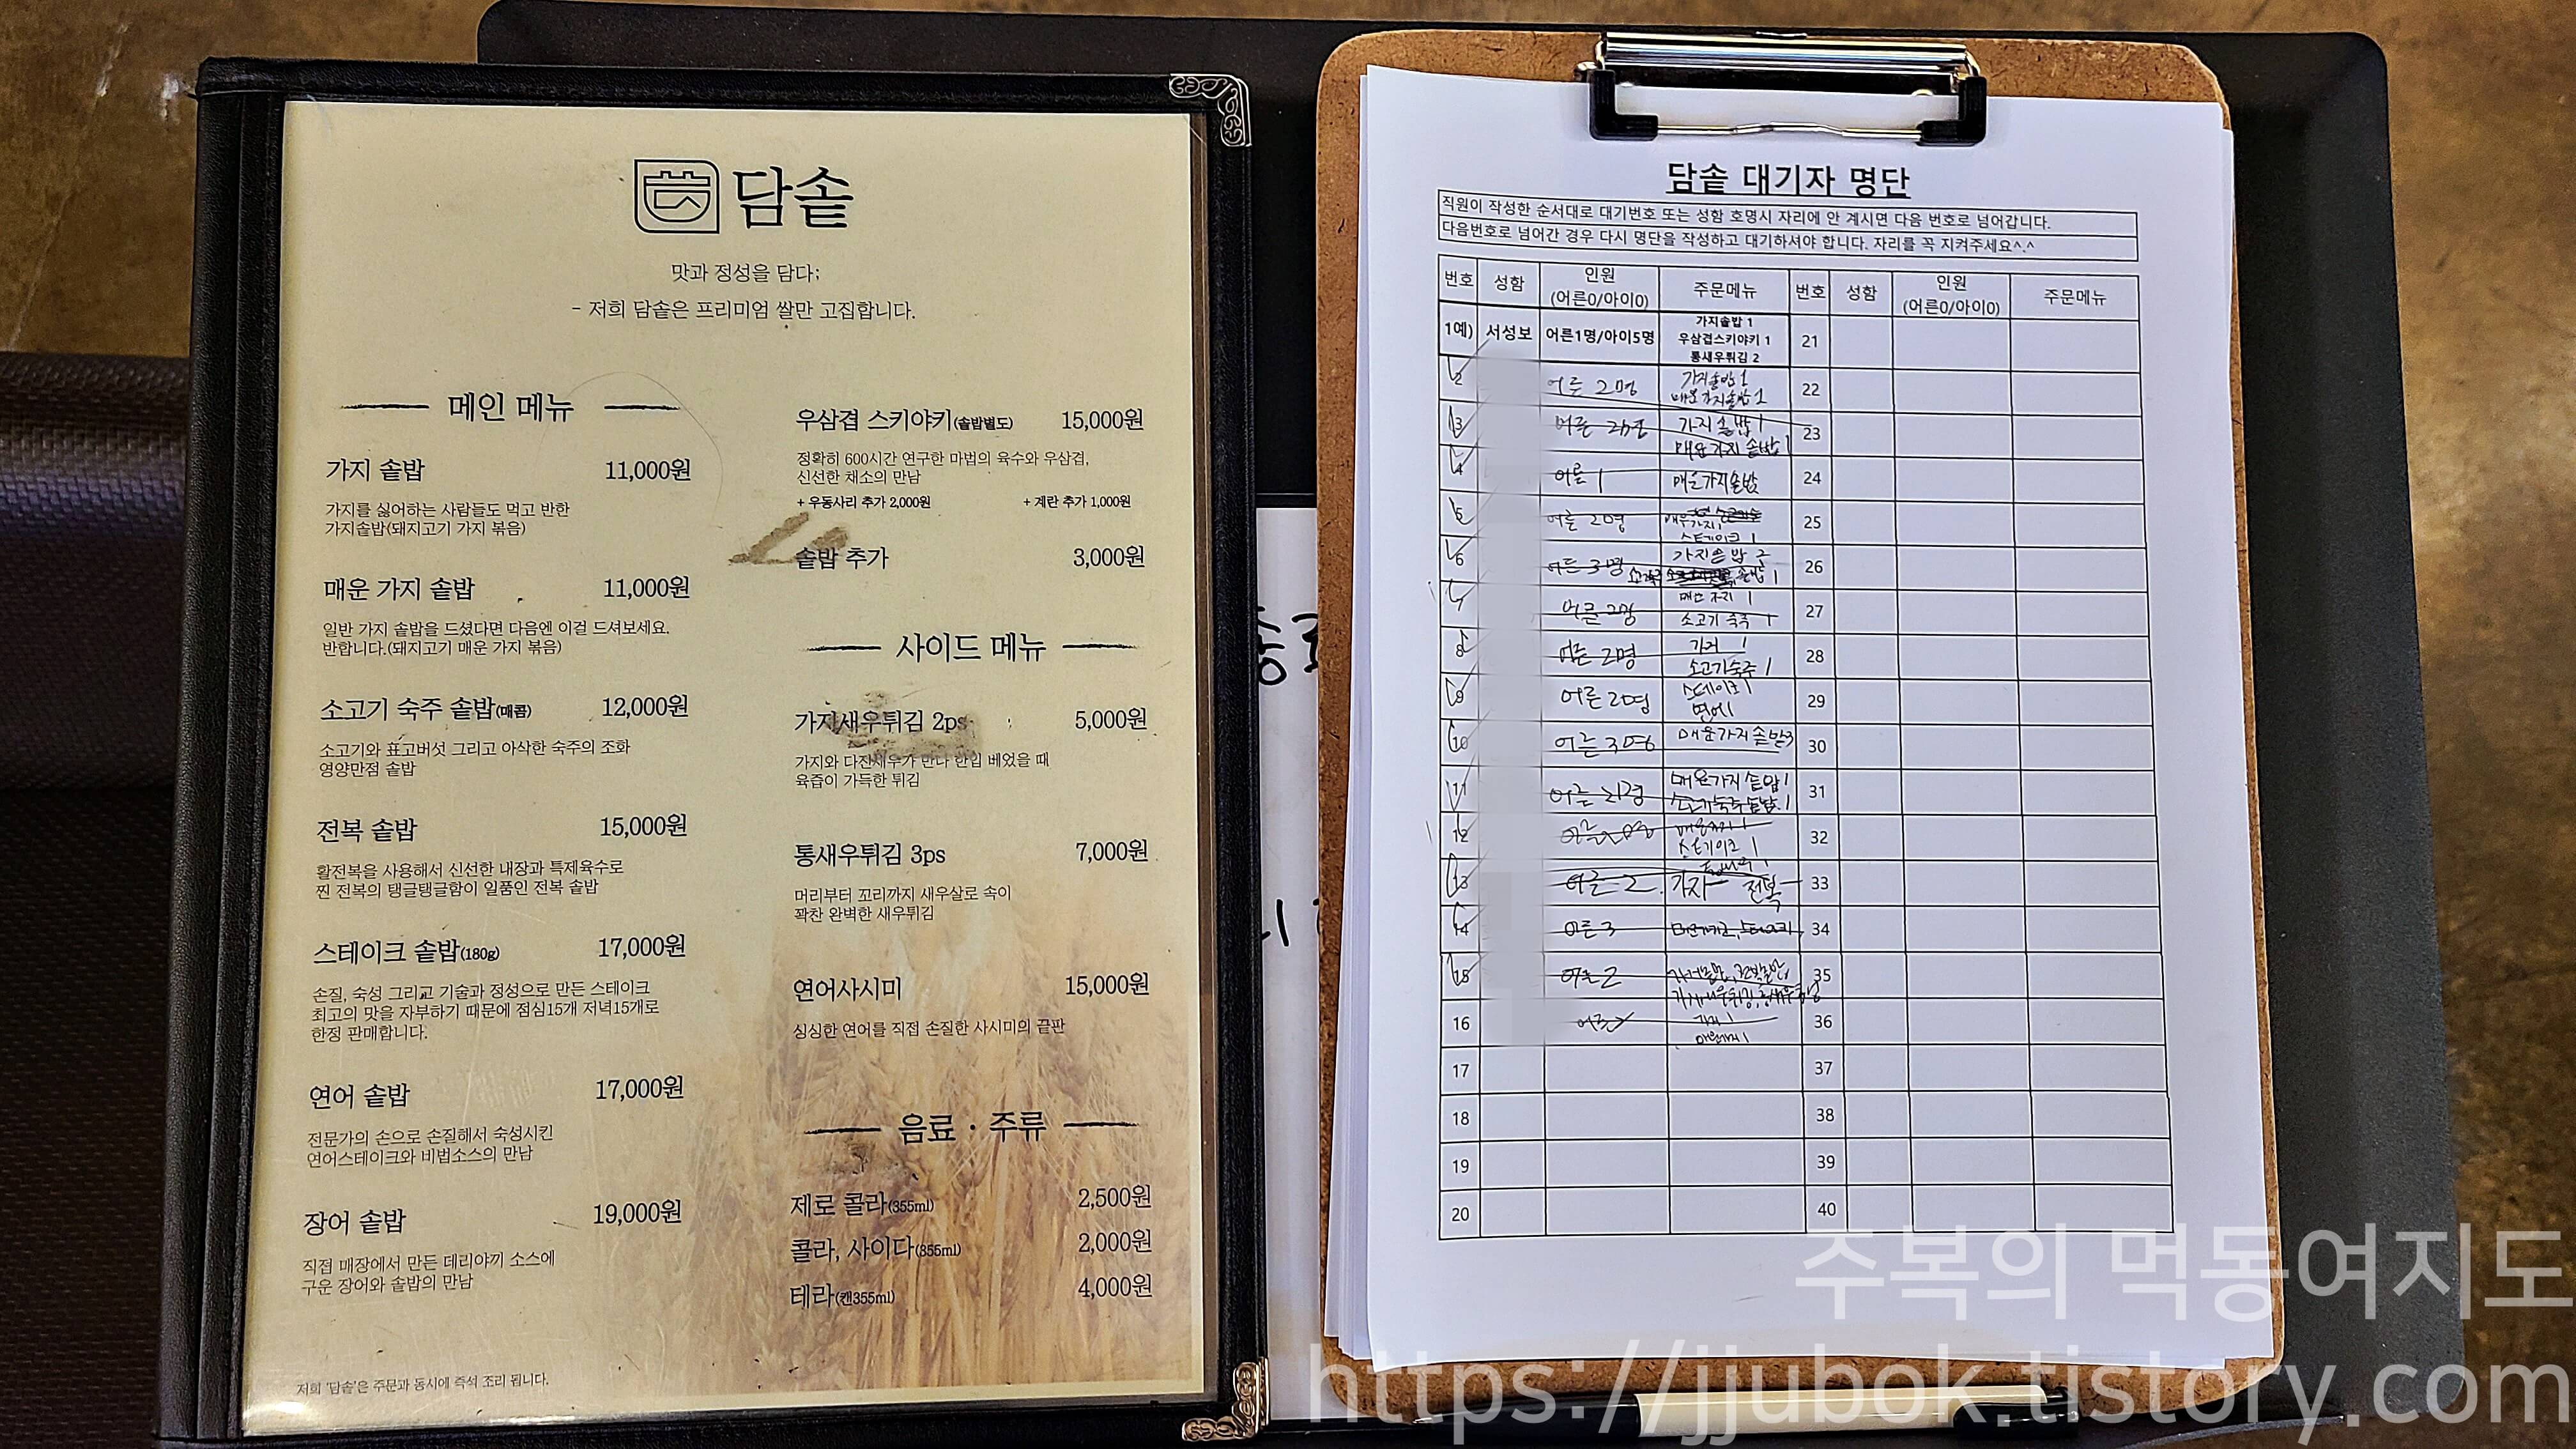 담솥
맛과 정성을 담다;
- 저희 담솥은 프리미엄 쌀만 고집합니다.
메인 메뉴
가지 솥밥 11,000원
가지를 싫어하는 사람들도 먹고 반한
가지솥밥(돼지고기 가지 볶음)
매운 가지 솥밥 11,000원
일반 가지 솥밥을 드셨다면 다음엔 이걸 드셔보세요.
반합니다.(돼지고기 매운 가지 볶음)
소고기 숙주 솥밥(매콤) 12,000원
소고기와 표고버섯 그리고 아삭한 숙주의 조화
영양만점 솥밥
전복 솥밥 15,000원
활전복을 사용해서 신선한 내장과 특제육수로
찐 전복의 탱글탱글함이 일품인 전복 솥밥
스테이크 솥밥(180g) 17,000원
손질, 숙성 그리고 기술과 정성으로 만든 스테이크
최고의 맛을 자부하기 때문에 점심15개 저녁15개로
한정 판매합니다.
연어 솥밥 17,000원
전문가의 손으로 손질해서 숙성시킨
연어스테이크와 비법소스의 만남
장어 솥밥 19,000원
직접 매장에서 만든 데리야끼 소스에
구운 장어와 솥밥의 만남
저희 '담솥'은 주문과 동시에 즉석 조리 됩니다.
우삼겹 스키야키(솥밥별도) 15,000원
정확히 600시간 연구한 마법의 육수와 우삼겹,
신선한 채소의 만남
+ 우동사리 추가 2,000원 + 계란 추가 1,000원
솥밥 추가 3,000원
사이드 메뉴
가지새우튀김 2ps 5,000원
가지와 다진새우가 만나 한입 베었을 때
육즙이 가득한 튀김
통새우튀김 3ps 7,000원
머리부터 꼬리까지 새우살로 속이
꽉찬 완벽한 새우튀김
연어사시미 15,000원
싱싱한 연어를 직접 손질한 사시미의 끝판
음료 · 주류
제로 콜라(355ml) 2,500원
콜라, 사이다(355ml) 2,000원
테라(캔355ml) 4,000원
담솥 대기자 명단
직원이 작성한 순서대로 대기번호 또는 성함 호명시 자리에 안 계시면 다음 번호로 넘어갑니다.
다음번호로 넘어간 경우 다시 명단을 작성하고 대기하셔야 합니다. 자리를 꼭 지켜주세요^.^
번호 성함 인원 (어른0/아이0) 주문메뉴 번호 성함 인원 (어른0/아이0) 주문메뉴
1예) 서성보 어른1명/아이5명 가지솥밥 1 우삼겹스키야키 1 통새우튀김 2 21
2 어른 2명 가지솥밥 1 매운가지솥밥 1 22
3 어른 2명 가지솥밥 1 매운가지 솥밥 1 23
4 어른 1 매운가지솥밥 24
5 어른 2명 스테이크 1 25
6 어른 3명 가지솥밥 2 26
7 어른 2명 매운가지 1 소고기 숙주 1 27
8 어른 2명 가지 1 소고기숙주 1 28
9 어른 2명 스테이크 1 연어 1 29
10 어른 3명 매운가지솥밥3 30
11 어른 2명 매운가지솥밥 1 소고기숙주솥밥 1 31
12 스테이크 1 32
13 어른 2 가지 전복 33
14 어른 3 34
15 어른 2 35
16 36
17 37
18 38
19 39
20 40
주복의 먹동여지도
https://jjubok.tistory.com